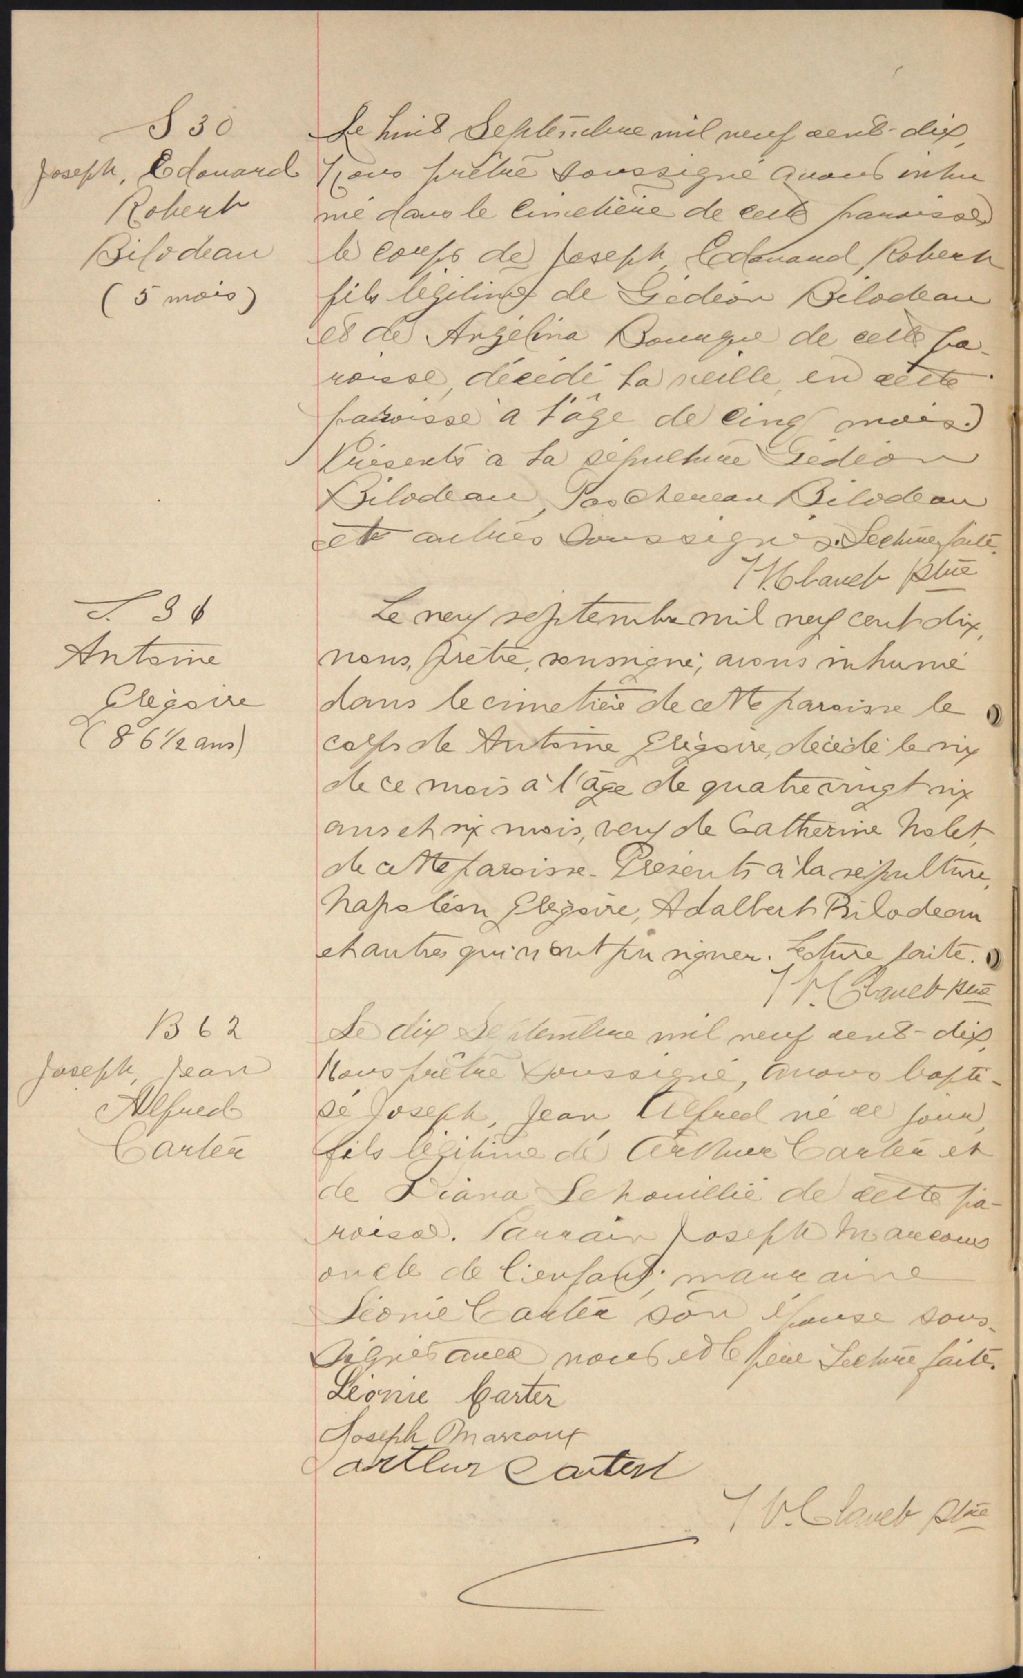 S 30
Joseph, Edouard
Robert
Bilodeau
(5 mois)
Le huit Septembre mil neuf cent-dix,
Nous prêtre soussigné avons inhu
mé dans le cimetière de cette paroisse
le corps de Joseph, Edouard, Robert
fils légitime de Gédéon Bilodeau
et de Angélina Bourque de cette pa-
roisse, décédé la veille en cette
paroisse à l'âge de cinq mois.
Présents à la sépulture Gédéon
Bilodeau, Paschereau Bilodeau
et autres soussignés. Lecture faite.
J V. Clavet ptre
S. 31
Antoine
Grégoire
(86 1/2 ans)
Le neuf septembre mil neuf cent dix,
nous, prêtre, soussigné, avons inhumé
dans le cimetière de cette paroisse le
corps de Antoine Grégoire, décédé le six
de ce mois à l'âge de quatre vingt six
ans et six mois, veuf de Catherine Nolet,
de cette paroisse. Présents à la sépulture,
Napoléon Grégoire, Adalbert Bilodeau
et autres qui n'ont pu signer. Lecture faite.
J V. Clavet ptre
B 62
Joseph, Jean
Alfred
Carter
Le dix Septembre mil neuf cent-dix,
Nous prêtre soussigné, avons bapti-
sé Joseph, Jean, Alfred né ce jour,
fils légitime de Arthur Carter et
de Diana Lehouillié de cette pa-
roisse. Parrain Joseph Marcoux
oncle de l'enfant; marraine
Léonie Carter son épouse sous-
signés avec nous et le père Lecture faite.
Léonie Carter
Joseph Marcoux
Arthur Carter
J V. Clavet ptre